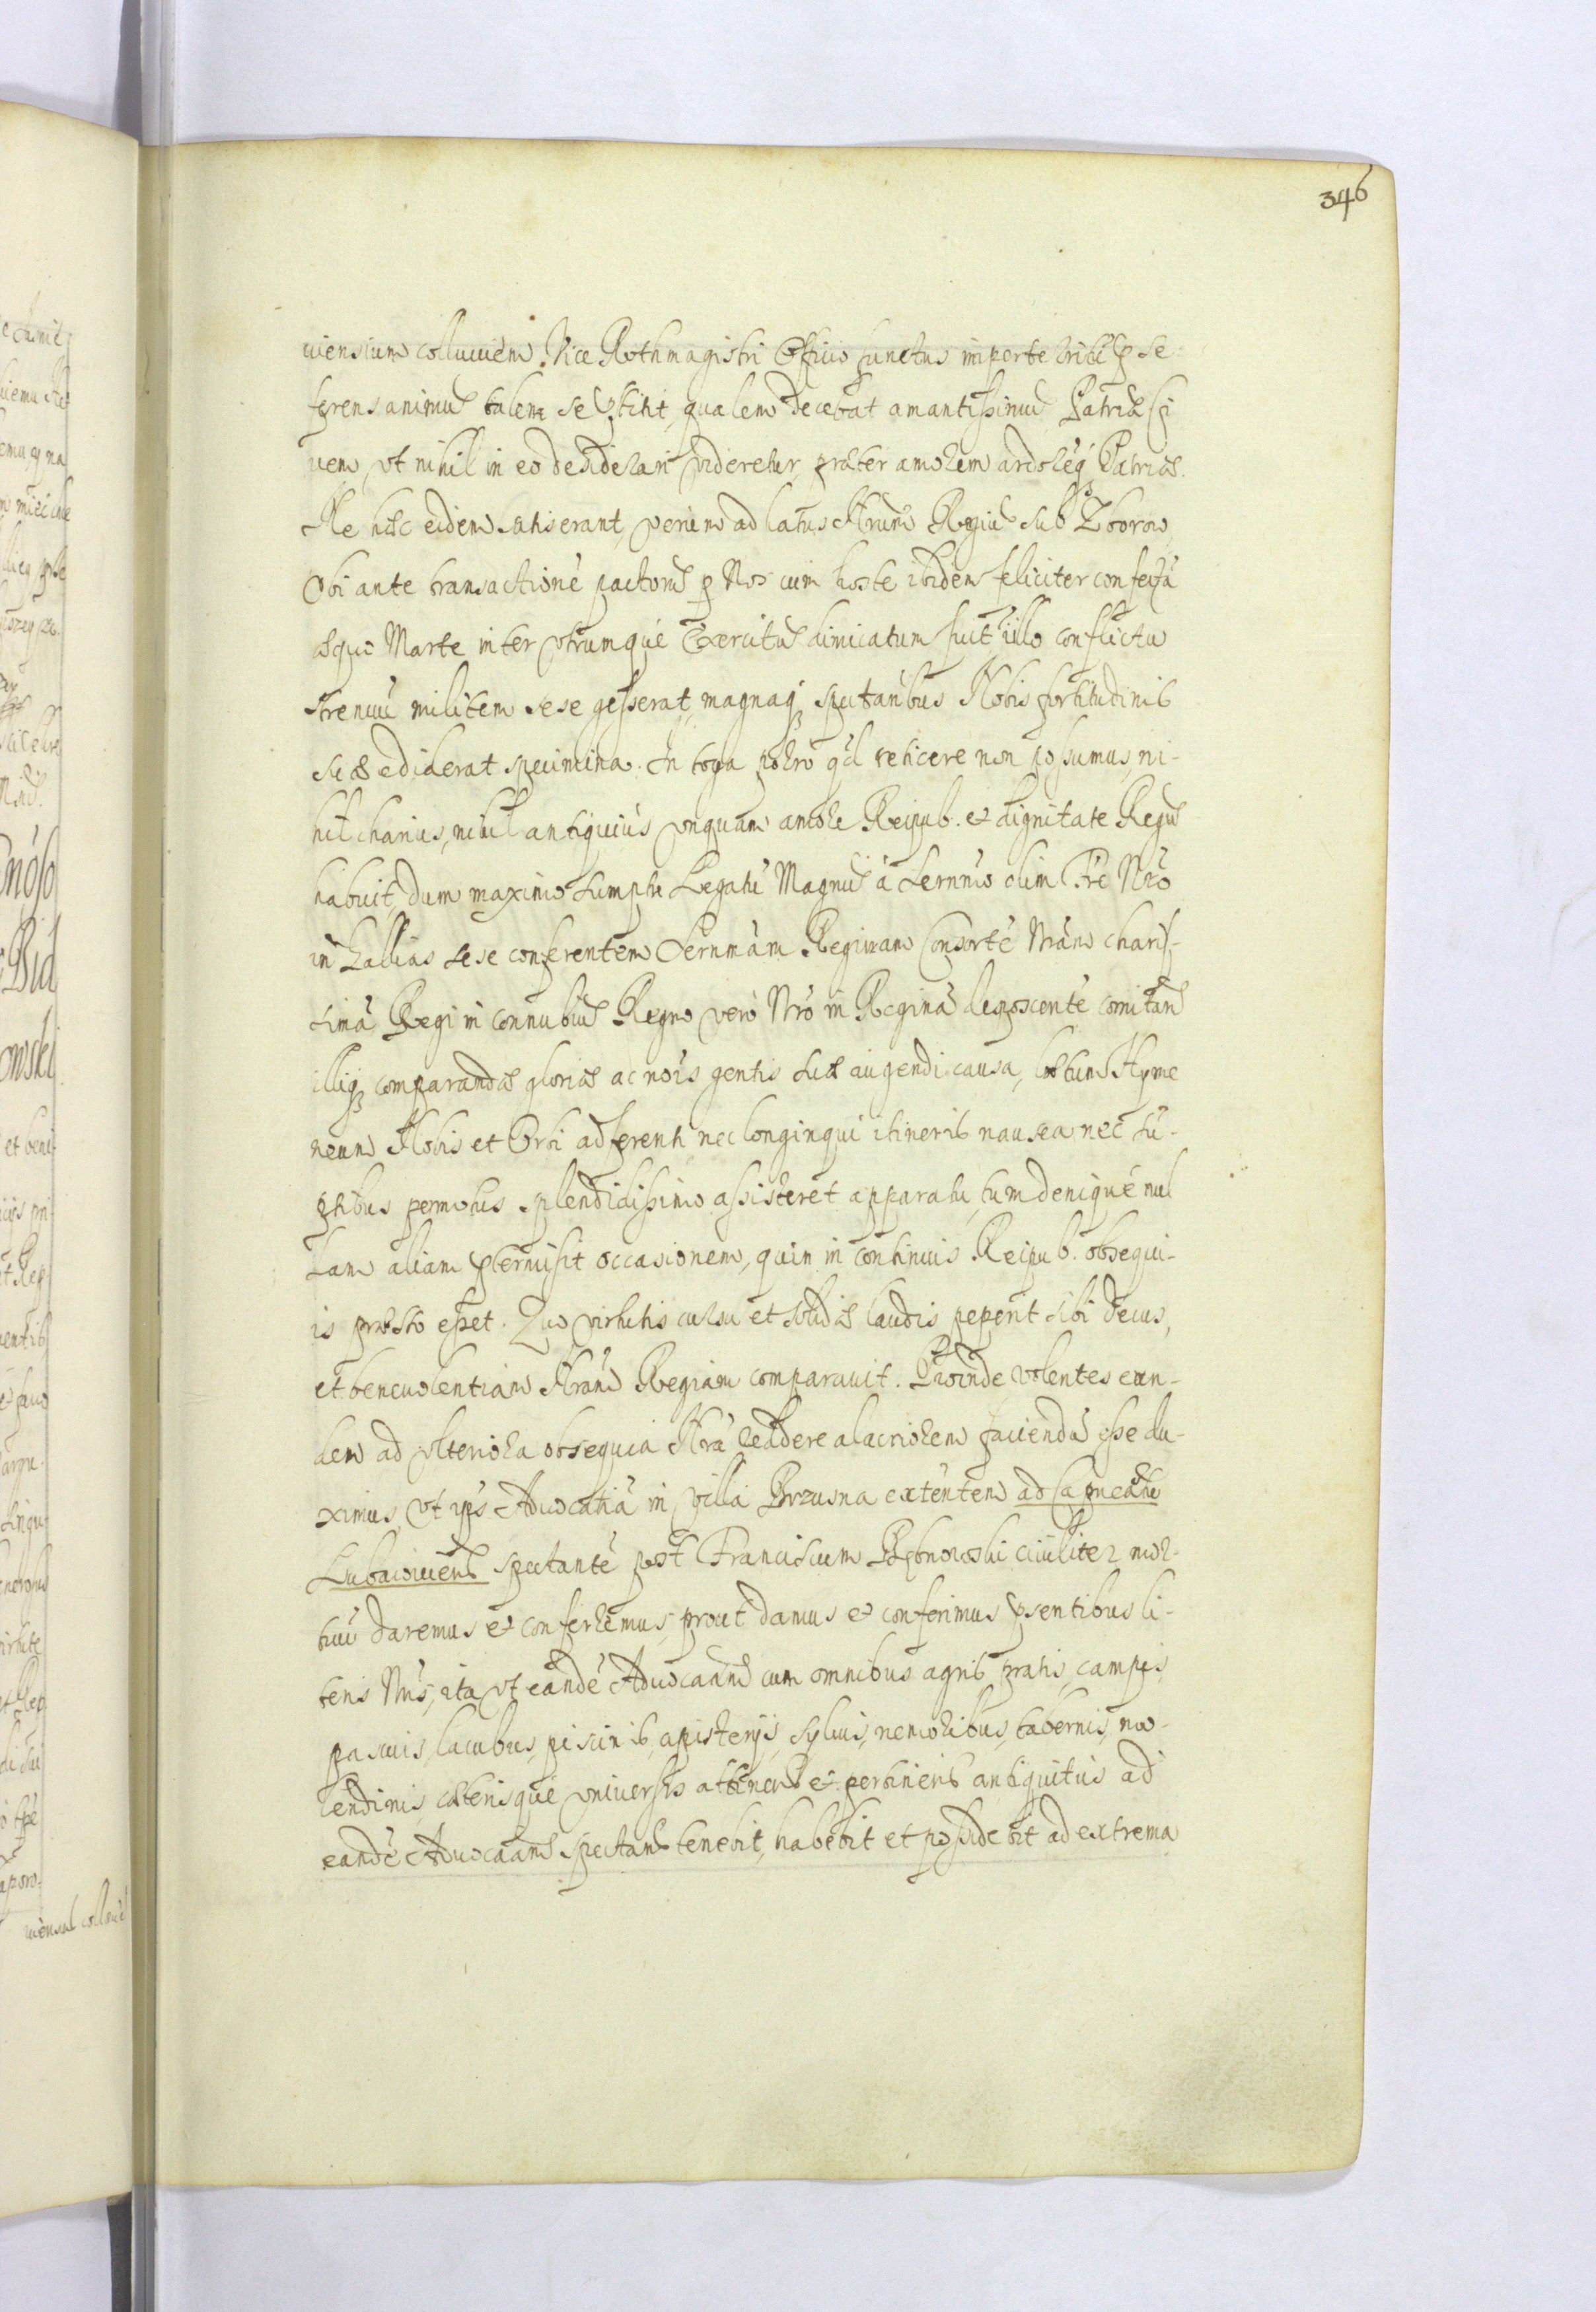 346
uiensium colluuiem. Vice Rothmagistri Officio functus imperterritũ p̱ se
ferens animũ talem se p̱stitit, qualem decebat amantissimũ Patriæ Ci
uem, vt nihil in eo desiderari videretur, præter amorem ardoremq́ Patriæ.
Ne hæc eidem satis erant, verum ad latus Nrum̃ Regiũ sub Zborow,
Vbi ante transactionẽ pactorũ p̱ Nos cum hoste ibidem feliciter confectã
æquo Marte inter vtrumque Exercitũ dimicatum fuit, illo conflictu
strenuũ militem sese gesserat, magnaq́ spectantibus Nobis fortitudinis
suæ ediderat specimina. In toga porro qd̃ reticere non possumus, ni-
hil charius, nihil antiquius vnquam amore Reipub. et dignitate Regũ
habuit, dum maximo sumptu Legatũ Magnũ à Sernmõ olim Fre Nrõ
in Gallias sese conferentem Sernmam Reginam Consortẽ Nrãm charis-
simã Regi in connubiũ Regno vero Nrõ in Reginã deposcentẽ comitans
illiq́ comparandæ gloriæ ac nõis gentis suæ augendi causa, lætum Hyme
neum Nobis et Orbi adferenti nec longinqui itineris nausea nec sũ-
ptibus permotus splendidissimo assisteret apparatu, tum denique nul
lam aliam p̱termisit occasionem, quin in continuis Reipub. obsequi-
is præsto esset. Quo virtutis cursu et solidæ laudis peperit sibi decus,
et beneuolentiam Nrãm Regiam comparauit. Proinde volentes eun-
dem ad vlteriora obsequia Nrã reddere alacriorem faciendũ esse du-
ximus, vt ips Aduocatiã in villa Brzusna extentem ad Capneatũ
Lubacouiens̃ spectantẽ post Franciscum Rębnowski ciuiliter mor-
tuũ daremus et conferremus, prout damus et conferimus p̱sentibus li-
teris Nris, ita vt eandẽ Aduocaam̃ cum omnibus agris, pratis, campis,
pascuis, lacubus, piscinis, apisterijs, syluis, nemoribus, tabernis, mo-
lendinis, cæterisque vniuersis attinens̃ et pertinens̃ antiquitus ad
eandẽ Aduocaam̃ spectans̃ tenebit, habebit et possidebit ad extrema